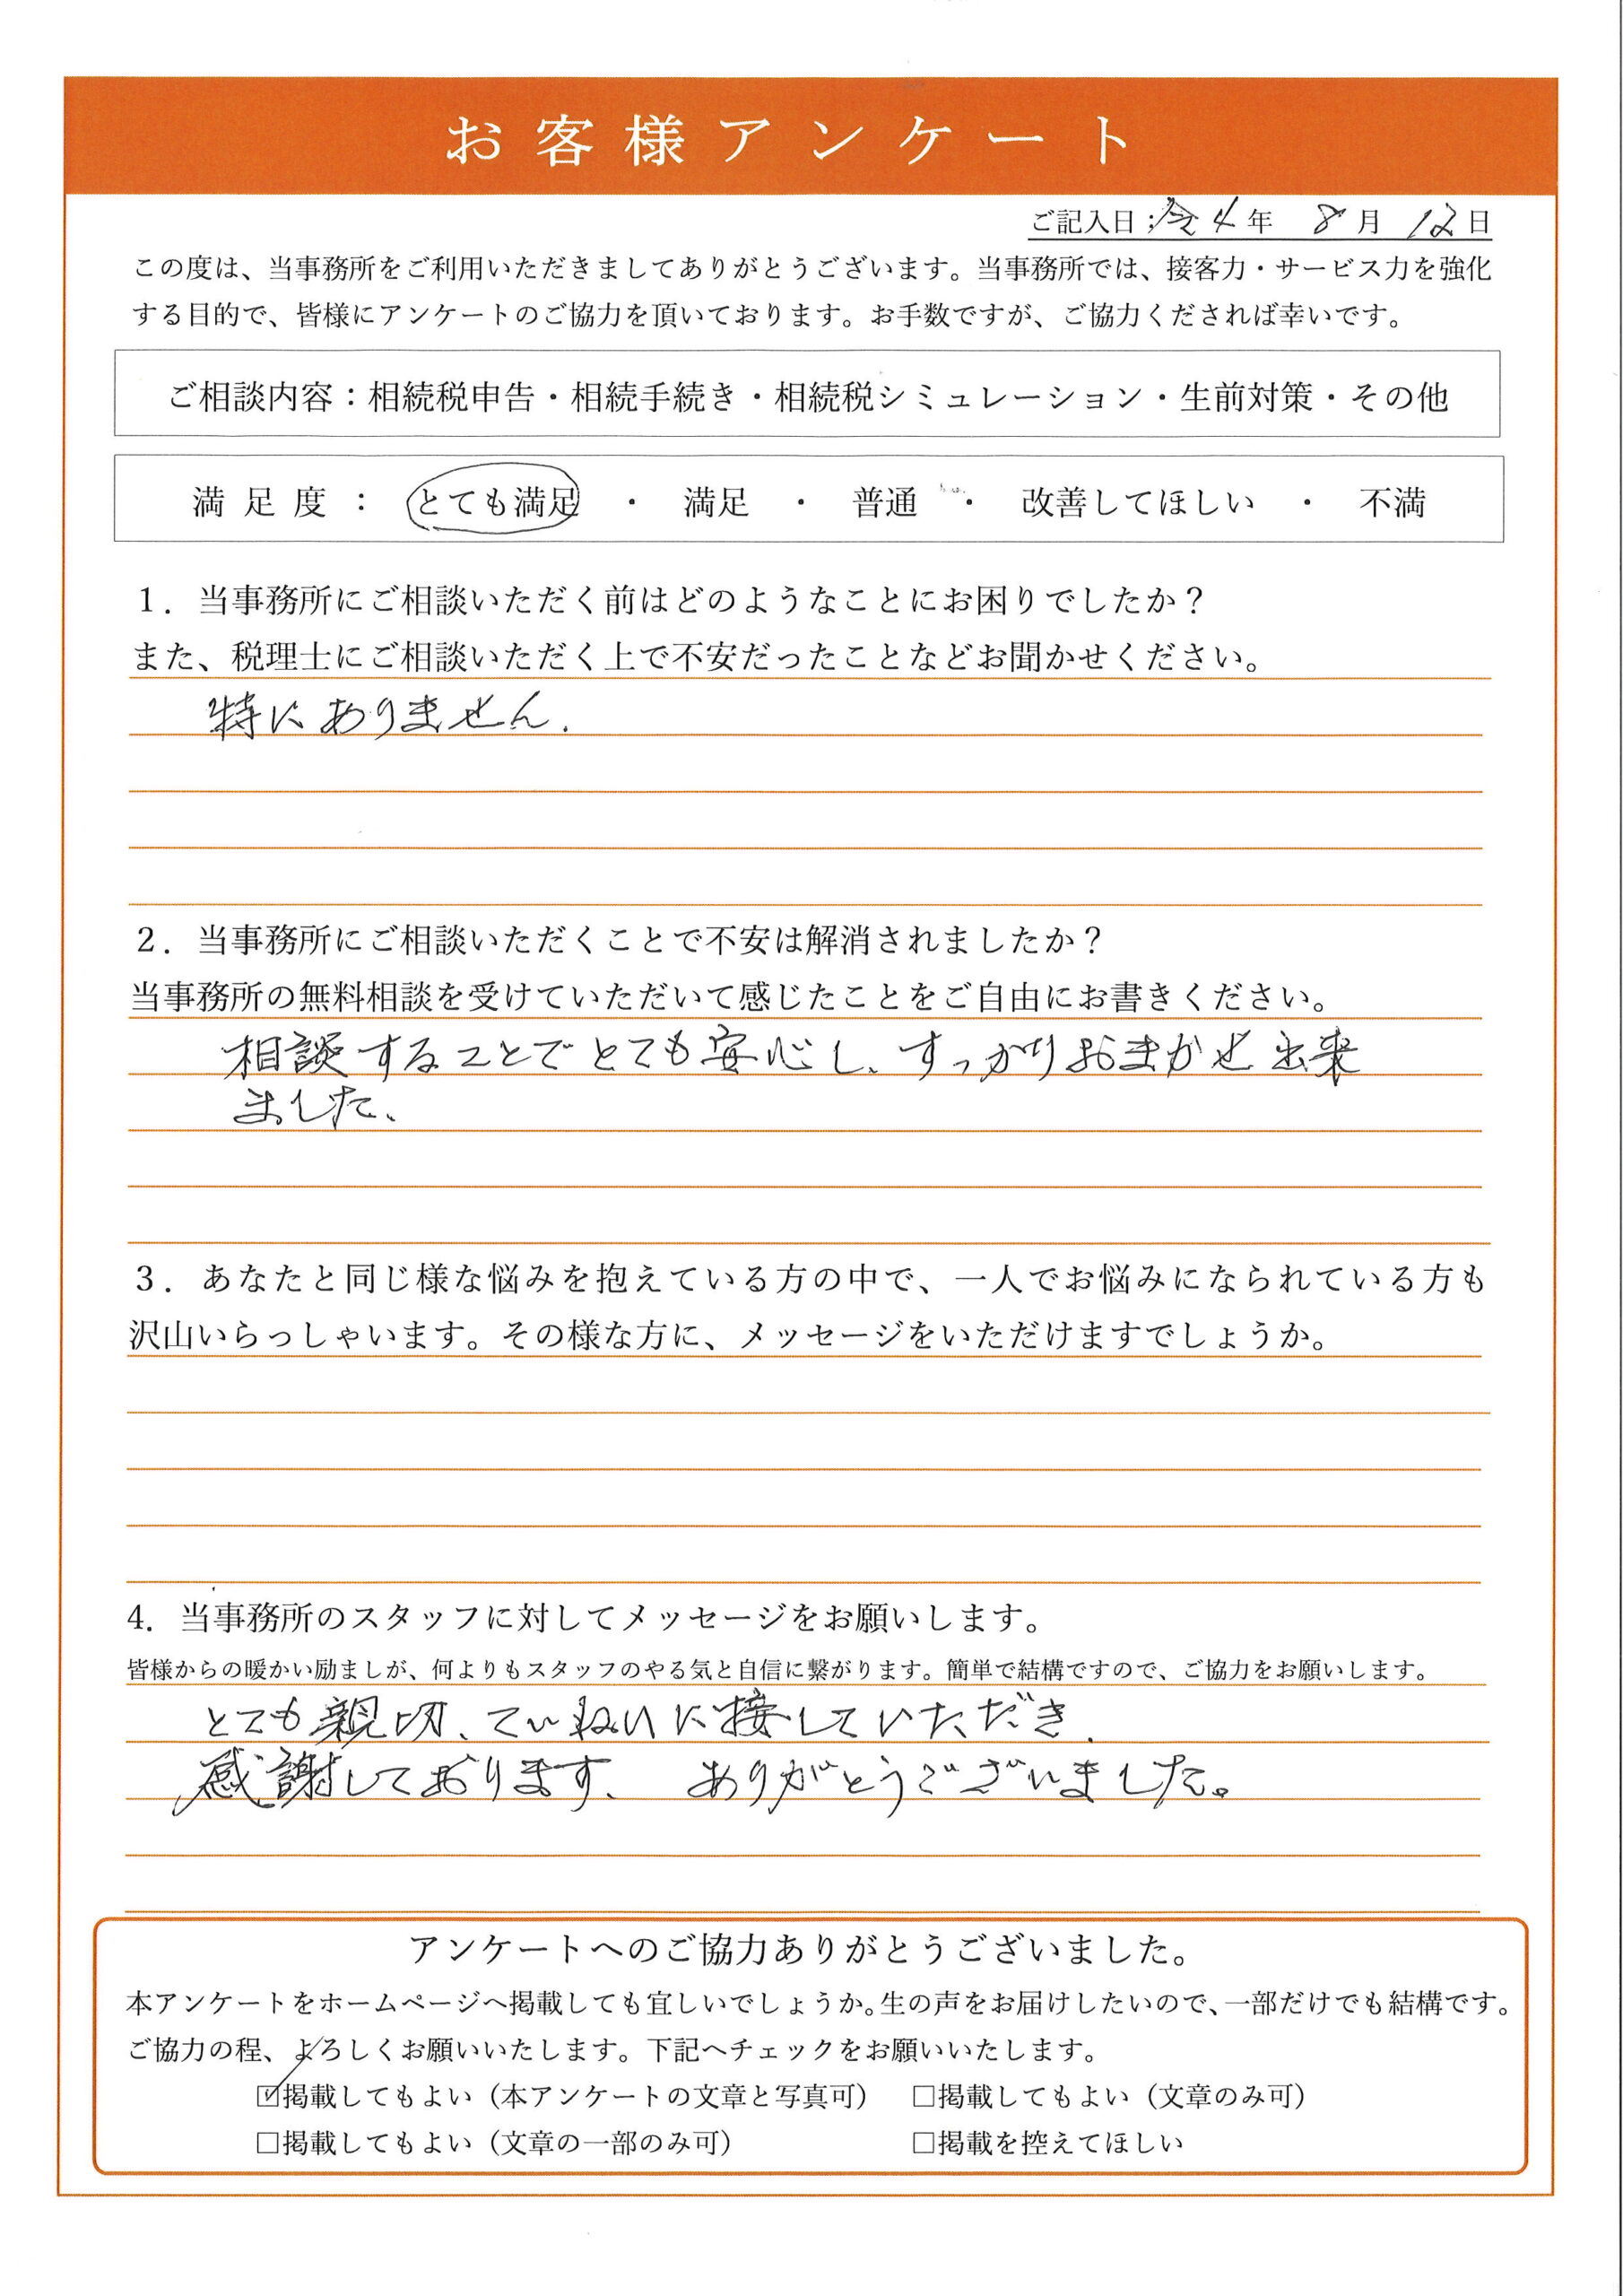 お客様アンケート
ご記入日；令4年 8月 12日
この度は、当事務所をご利用いただきましてありがとうございます。当事務所では、接客力・サービス力を強化
する目的で、皆様にアンケートのご協力を頂いております。お手数ですが、ご協力くだされば幸いです。
ご相談内容：相続税申告・相続手続き・相続税シミュレーション・生前対策・その他
満足度： とても満足 ・ 満足 ・ 普通 ・ 改善してほしい ・ 不満
１．当事務所にご相談いただく前はどのようなことにお困りでしたか？
また、税理士にご相談いただく上で不安だったことなどお聞かせください。
特にありません.
２．当事務所にご相談いただくことで不安は解消されましたか？
当事務所の無料相談を受けていただいて感じたことをご自由にお書きください。
相談することでとても安心し、すっかりおまかせ出来
ました、
３．あなたと同じ様な悩みを抱えている方の中で、一人でお悩みになられている方も
沢山いらっしゃいます。その様な方に、メッセージをいただけますでしょうか。
4．当事務所のスタッフに対してメッセージをお願いします。
皆様からの暖かい励ましが、何よりもスタッフのやる気と自信に繋がります。簡単で結構ですので、ご協力をお願いします。
とても親切、ていねいに接していただき、
感謝しております、 ありがとうございました。
アンケートへのご協力ありがとうございました。
本アンケートをホームページへ掲載しても宜しいでしょうか。生の声をお届けしたいので、一部だけでも結構です。
ご協力の程、よろしくお願いいたします。下記へチェックをお願いいたします。
☑掲載してもよい（本アンケートの文章と写真可） □掲載してもよい（文章のみ可）
□掲載してもよい（文章の一部のみ可） □掲載を控えてほしい